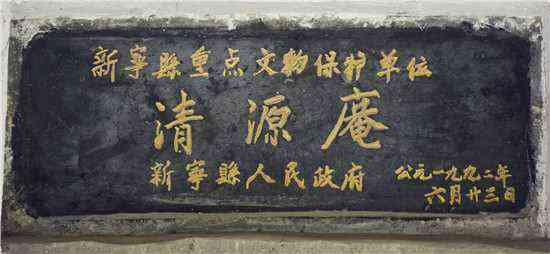 新寧縣重点文物保护单位
清源庵
新寧縣人民政府
公元一九九二年
六月廿三日